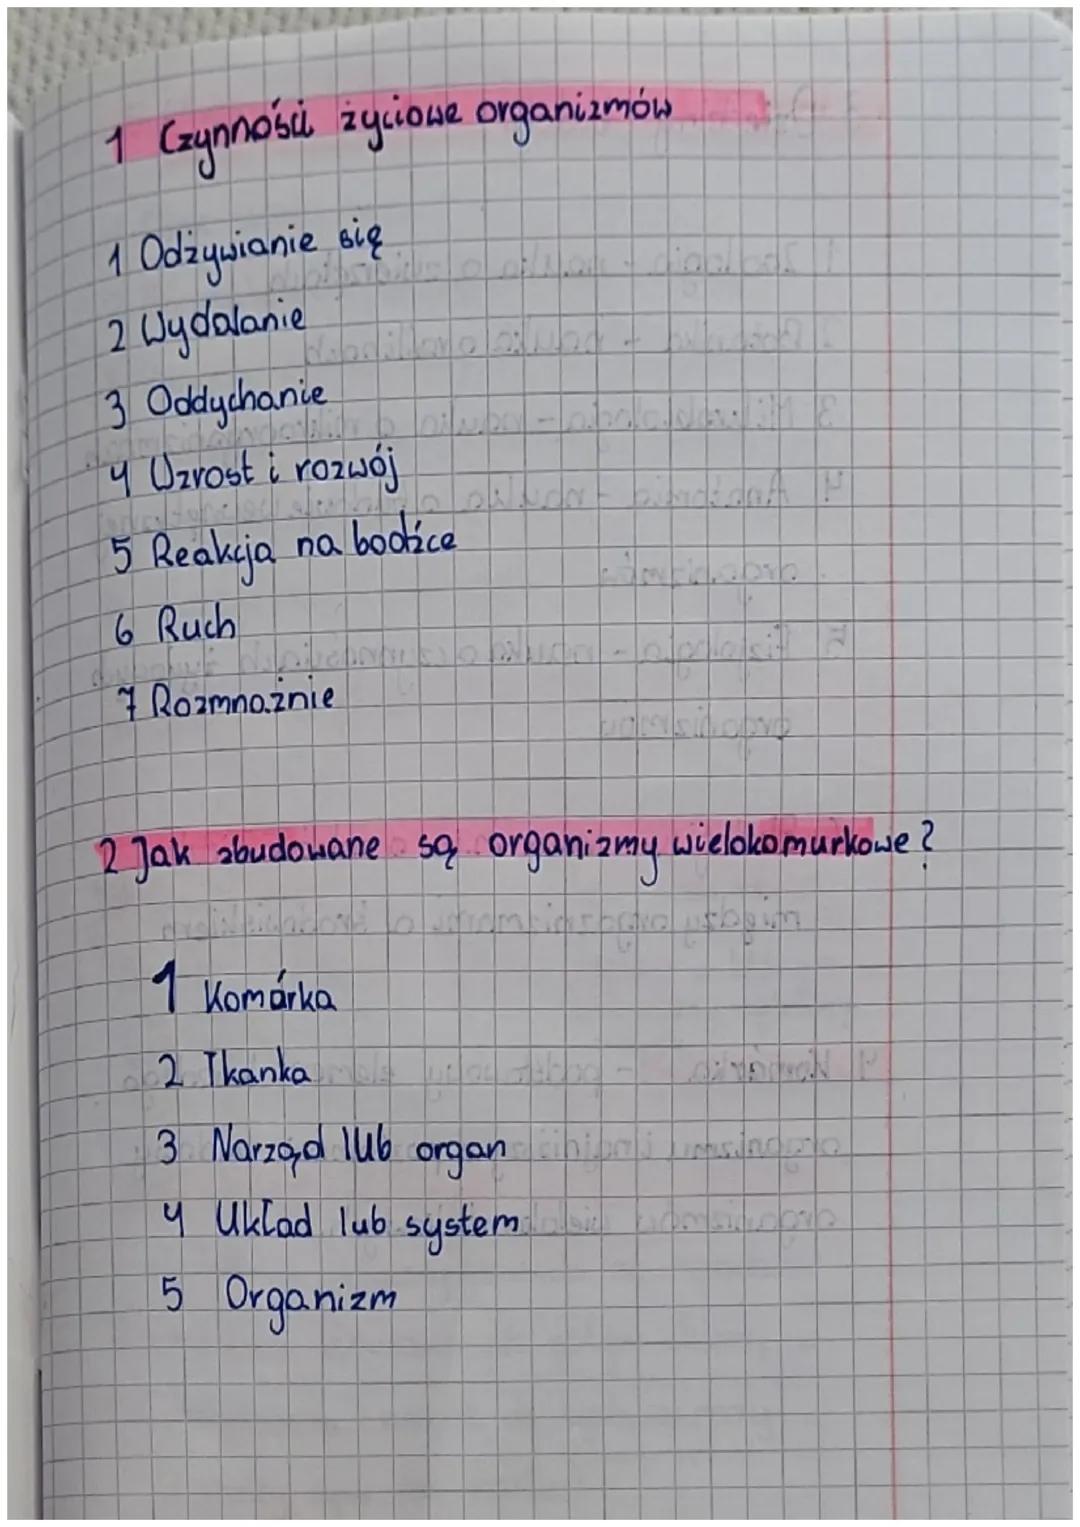 1 Czynności życiowe organizmów
1 Odżywianie się
2 Wydalanie
3 Oddychanie
4 Wzrost i rozwój
5 Reakcja na bodźce
6 Ruch
7 Rozmnażnie
2 Jak zbudowane są organizmy wielokomurkowe?
1 Komórka
2 Tkanka
3 Narząd lub organ
4 Układ lub system
5 Organizm